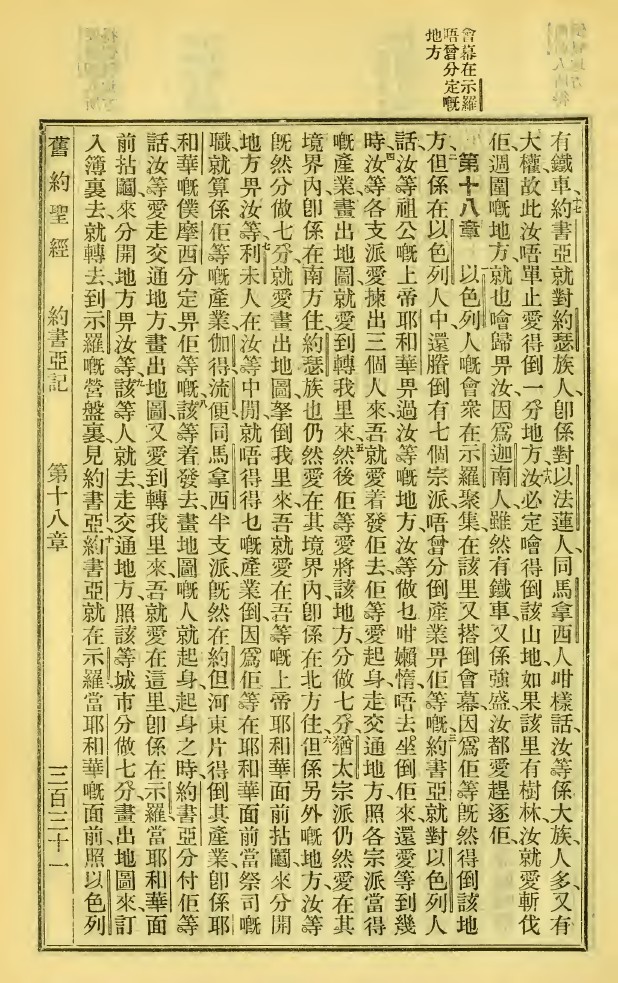 會幕在示羅
唔曾分定嘅
地方
有鐵車、十七約書亞就對約瑟族人、卽係對以法蓮人同馬拿西人咁樣話、汝等係大族、人多、又有
大權、故此汝唔單止愛得倒一分地方、十八汝必定噲得倒該山地、如果該里有樹林、汝就愛斬伐
佢、週圍嘅地方、就也噲歸畀汝、因爲迦南人、雖然有鐵車、又係強盛、汝都愛趕逐佢、
第十八章 一以色列人嘅會衆在示羅聚集、在該里又搭倒會幕、因爲佢等旣然得倒該地
方、二但係在以色列人中還賸倒有七個宗派、唔曾分倒產業畀佢等嘅、三約書亞就對以色列人
話、汝等祖公嘅上帝耶和華畀過汝等嘅地方、汝等做乜咁嬾惰、唔去坐倒佢來、還愛等到幾
時、四汝等各支派愛揀出三個人來、吾就愛着發佢去、佢等愛起身、走交通地方、照各宗派當得
嘅產業、畫出地圖、就愛到轉我里來、五然後佢等愛將該地方分做七分、猶太宗派仍然愛在其
境界內、卽係在南方住、約瑟族也仍然愛在其境界內、卽係在北方住、六但係另外嘅地方、汝等
旣然分做七分、就愛畫出地圖、拏倒我里來、吾就愛在吾等嘅上帝耶和華面前拈鬮來分開
地方畀汝等、七利未人在汝等中間、就唔得得乜嘅產業倒、因爲佢等在耶和華面前當祭司嘅
職、就算係佢等嘅產業、伽得流便同馬拿西半支派、旣然在約但河東片得倒其產業、卽係耶
和華嘅僕摩西分定畀佢等嘅、八該等着發去畫地圖嘅人就起身、起身之時、約書亞分付佢等
話、汝等愛走交通地方、畫出地圖、又愛到轉我里來、吾就愛在這里、卽係在示羅當耶和華面
前拈鬮來分開地方畀汝等、九該等人就去走交通地方、照該等城市分做七分、畫出地圖來、訂
入簿裏去、就轉去到示羅嘅營盤裏、見約書亞、十約書亞就在示羅當耶和華嘅面前、照以色列
舊約聖經 約書亞記 第十八章 三百三十一